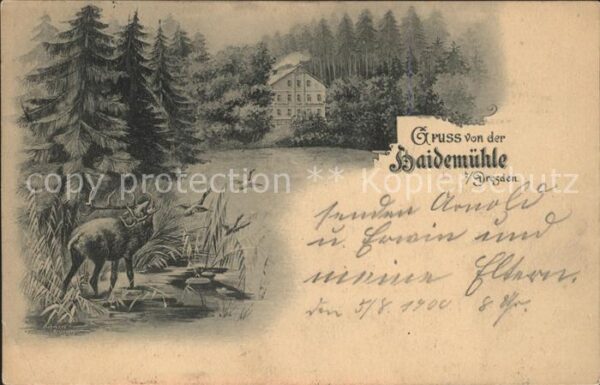 Gruss von der
Haidemühle
b/Dresden
copy protection · Kopierschutz
senden Arnold
u. Erwin und
meine Eltern.
den 5/8. 1900 8. Uhr.